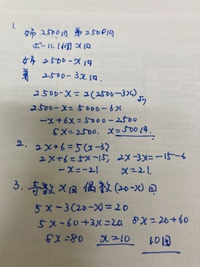 1.
姉 2500円 弟 2500円
ボール1個 x円
姉 2500-x円
弟 2500-3x円
2500-x=2(2500-3x)より
2500-x=5000-6x
-x+6x=5000-2500
5x=2500. x=500円
2. 2x+6=5(x-3)
2x+6=5x-15, 2x-3x=-15-6
-x=-21 x=21.
3. 奇数 x回 偶数 (20-x)回
5x-3(20-x)=20
5x-60+3x=20 8x=20+60
8x=80 x=10 10回